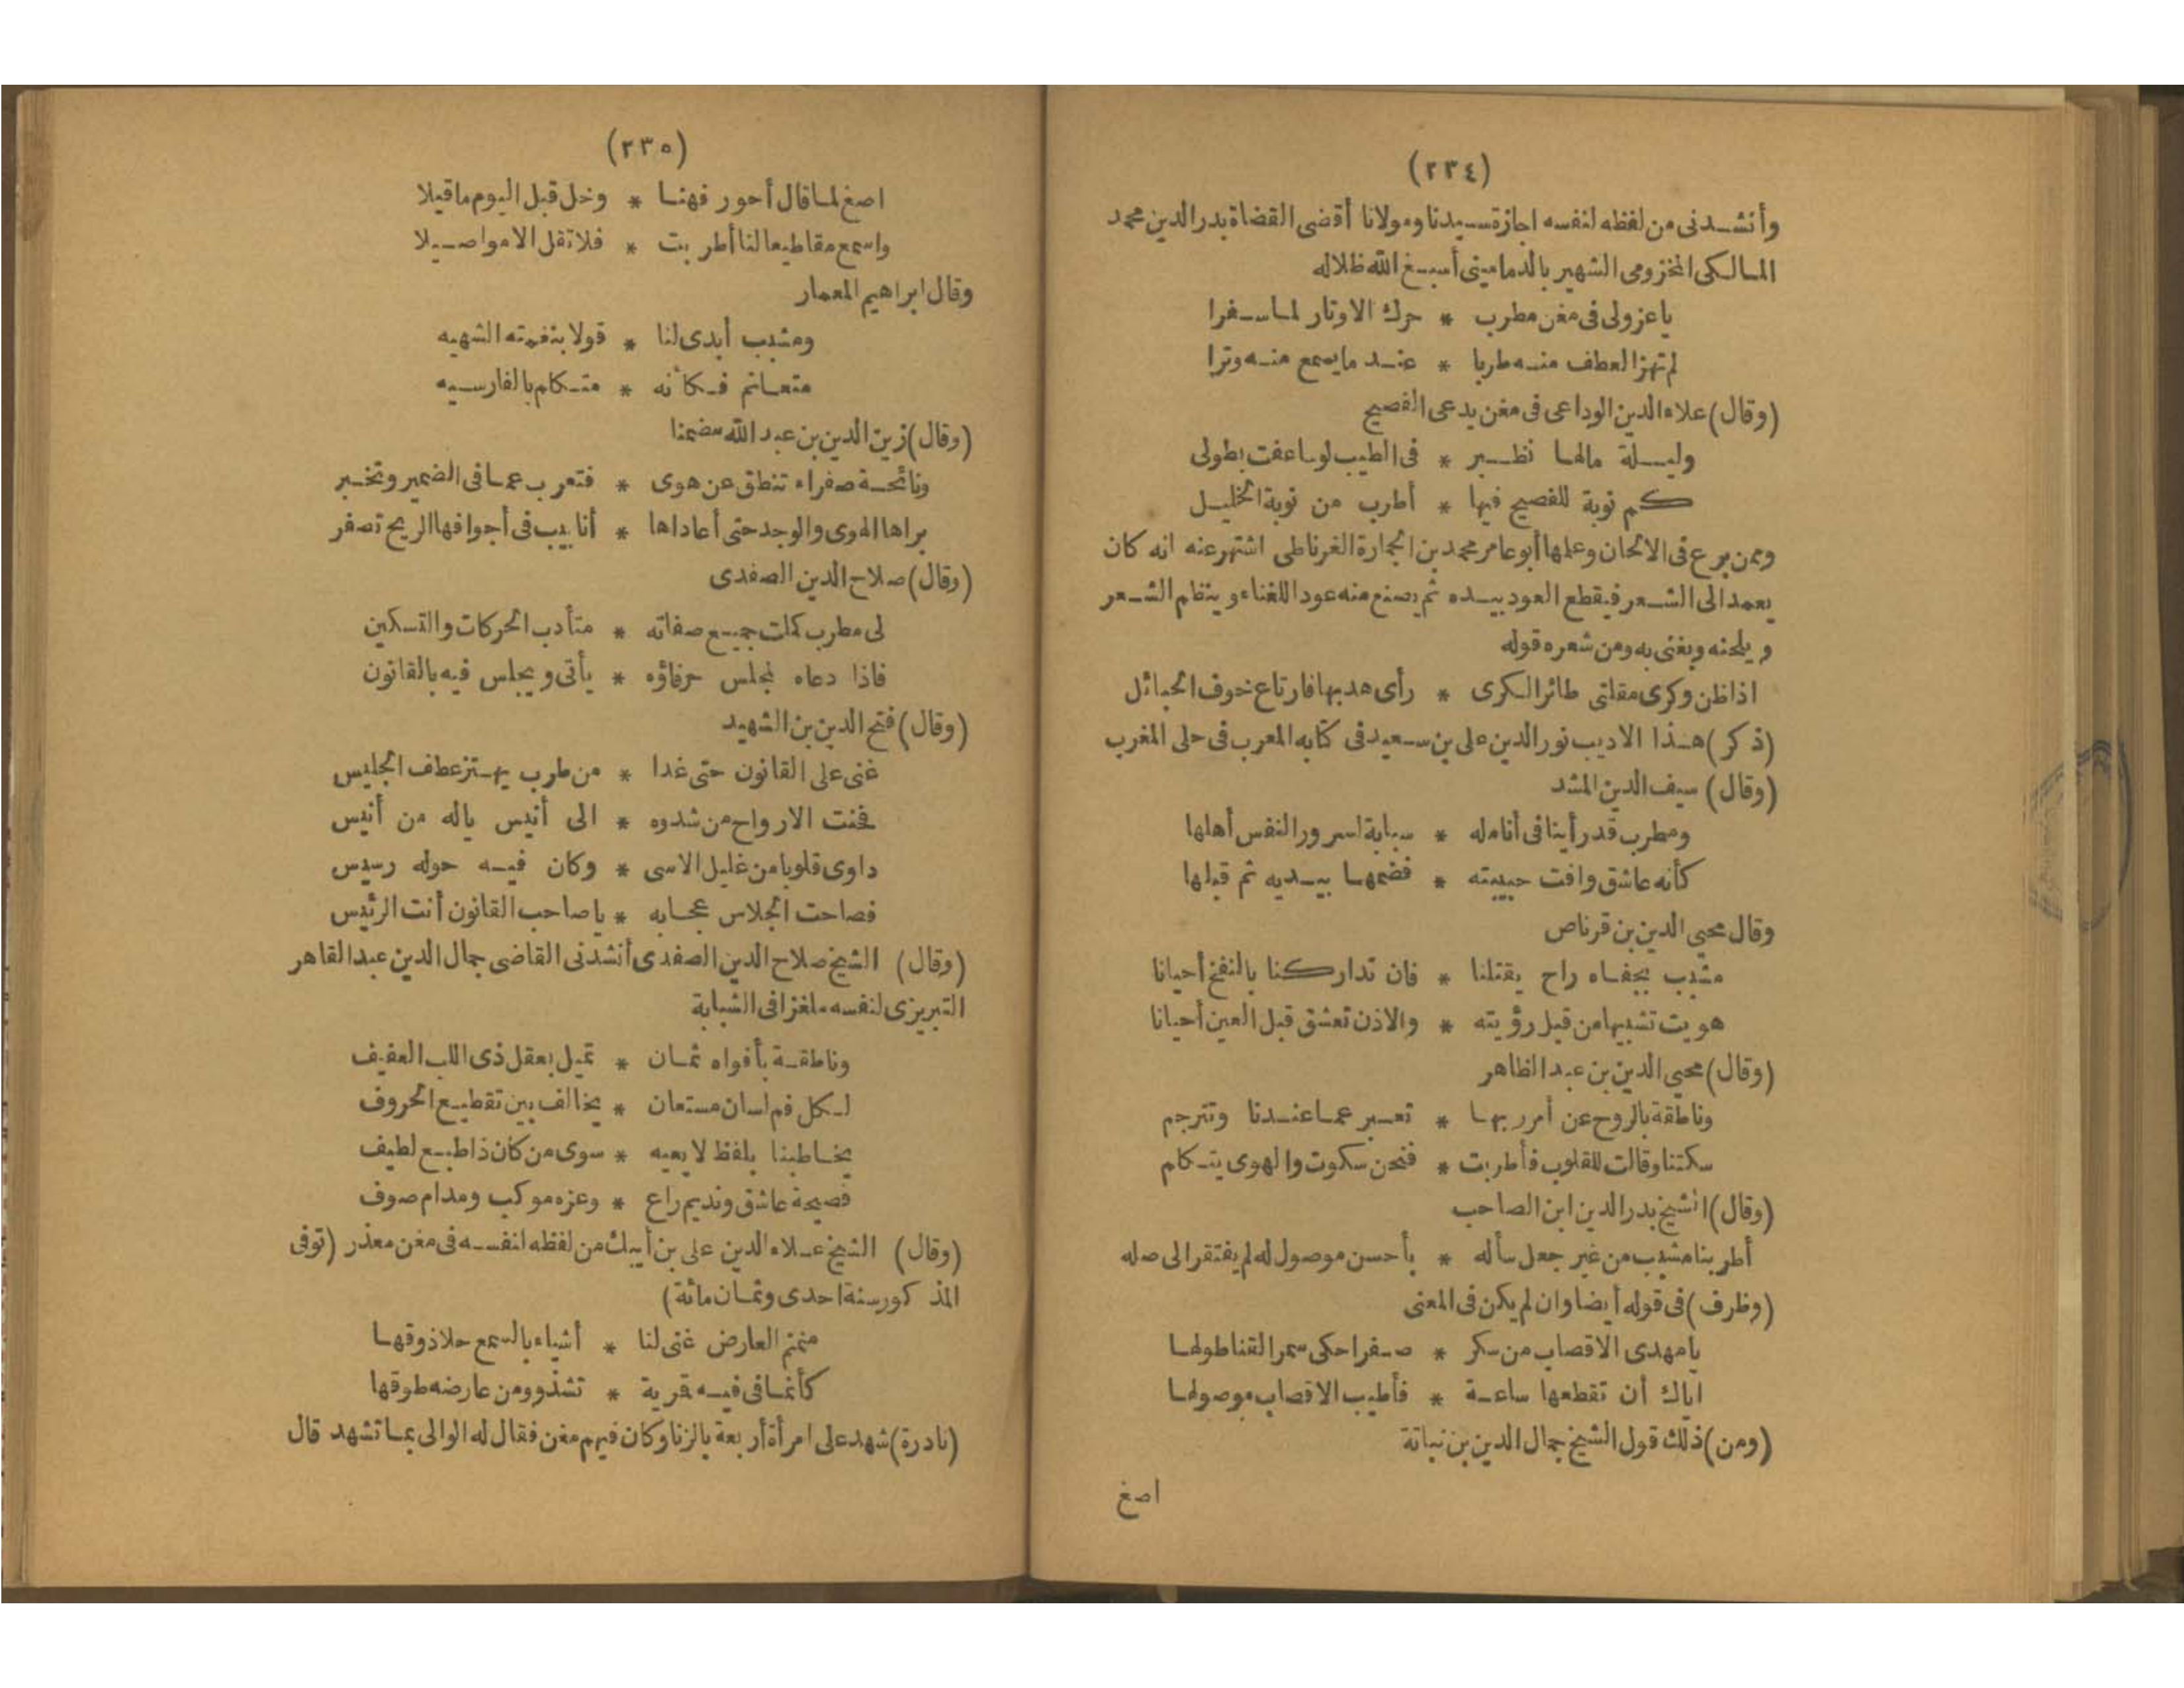 (٢٣٤)
وأنشدنى من لفظه لنفسه اجازة سيدنا ومولانا أقضى القضاة بدر الدين محمد
المالكى المخزومى الشهير بالدمامينى أسبغ الله ظلاله
ياعزولى فى مغن مطرب * حرك الاوتار لما سفرا
لم تهز العطف منه طربا * عند ما يسمع منه وترا
(وقال) علاء الدين الوداعى فى مغن يدعى الفصيح
وليلة مالها نظير * فى الطيب لو ساعفت بطولى
كم نوبة للفصيح فيها * أطرب من نوبة الخليل
وممن برع فى الالحان وعلمها أبو عامر محمد بن الحمارة الغرناطى اشتهر عنه انه كان
يعمد الى الشعر فيقطع العود بيده ثم يصنع منه عود اللغناء وينظم الشعر
ويلحنه ويغنى به ومن شعره قوله
اذا ظن وكرى مقلتى طائر الكرى * رأى هدبها فارتاع خوف الحبائل
(ذكر) هذا الاديب نور الدين على بن سعيد فى كتابه المعرب فى حلى المغرب
(وقال) سيف الدين المشد
ومطرب قد رأينا فى أنامله * سبابة لسرور النفس أهلها
كأنه عاشق وافت حبيبته * فضمها بيديه ثم قبلها
وقال محيى الدين بن قرناص
مشبب بجفاه راح يقتلنا * فان تداركنا بالنفخ أحيانا
هويت تشبيبها من قبل رؤيته * والاذن تعشق قبل العين أحيانا
(وقال) محيى الدين بن عبد الظاهر
وناطقة بالروح عن أمر ربها * تعبر عما عندنا وتترجم
سكتنا وقالت للقلوب فأطربت * فنحن سكوت والهوى يتكلم
(وقال) الشيخ بدر الدين ابن الصاحب
أطربنا مشبب من غير جعل سأله * بأحسن موصول له لم يفتقر الى صله
(وظرف) فى قوله أيضا وان لم يكن فى المعنى
يا مهدى الاقصاب من سكر * صفرا حكى سمر القنا طولها
اياك أن تقطعها ساعة * فأطيب الاقصاب موصولها
(ومن) ذلك قول الشيخ جمال الدين بن نباتة
اصغ
(٢٣٥)
اصغ لما قال أحور فهنا * وخل قبل اليوم ما قيلا
واسمع مقاطيعا لنا أطربت * فلا تقل الا مواصيلا
وقال ابراهيم المعمار
ومشبب أبدى لنا * قولا بنغمته الشهيه
متعانم فكأنه * متكلم بالفارسيه
(وقال) زين الدين بن عبد الله مضمنا
ونائحة صفراء تنطق عن هوى * فتعرب عما فى الضمير وتخبر
براها الهوى والوجد حتى أعاداها * أنابيب فى أجوافها الريح تصفر
(وقال) صلاح الدين الصفدى
لى مطرب كملت جميع صفاته * متأدب الحركات والتسكين
فاذا دعاه لمجلس حرفاؤه * يأتى ويجلس فيه بالقانون
(وقال) فتح الدين بن الشهيد
غنى على القانون حتى غدا * من طرب يهتز عطف الجليس
فحنت الارواح من شدوه * الى أنيس ياله من أنيس
داوى قلوبا من غليل الاسى * وكان فيه حوله رسيس
فصاحت الجلاس عجابه * يا صاحب القانون أنت الرئيس
(وقال) الشيخ صلاح الدين الصفدى أنشدنى القاضى جمال الدين عبد القاهر
التبريزى لنفسه ملغزا فى الشبابة
وناطقة بأفواه ثمان * تميل بعقل ذى اللب العفيف
لكل فم لسان مستعان * يخالف بين تقطيع الحروف
يخاطبنا بلفظ لا يعيه * سوى من كان ذا طبع لطيف
فصيحة عاشق ونديم راع * وعزه موكب ومدام صوف
(وقال) الشيخ علاء الدين على بن أيبك من لفظه لنفسه فى مغن معذر (توفى
المذكور سنة احدى وثمان مائة)
منمنم العارض غنى لنا * أشياء بالسمع حلا ذوقها
كأنما فى فيه قمرية * تشذو ومن عارضه طوقها
(نادرة) شهد على امرأة أربعة بالزنا وكان فيهم مغن فقال له الوالى بما تشهد قال